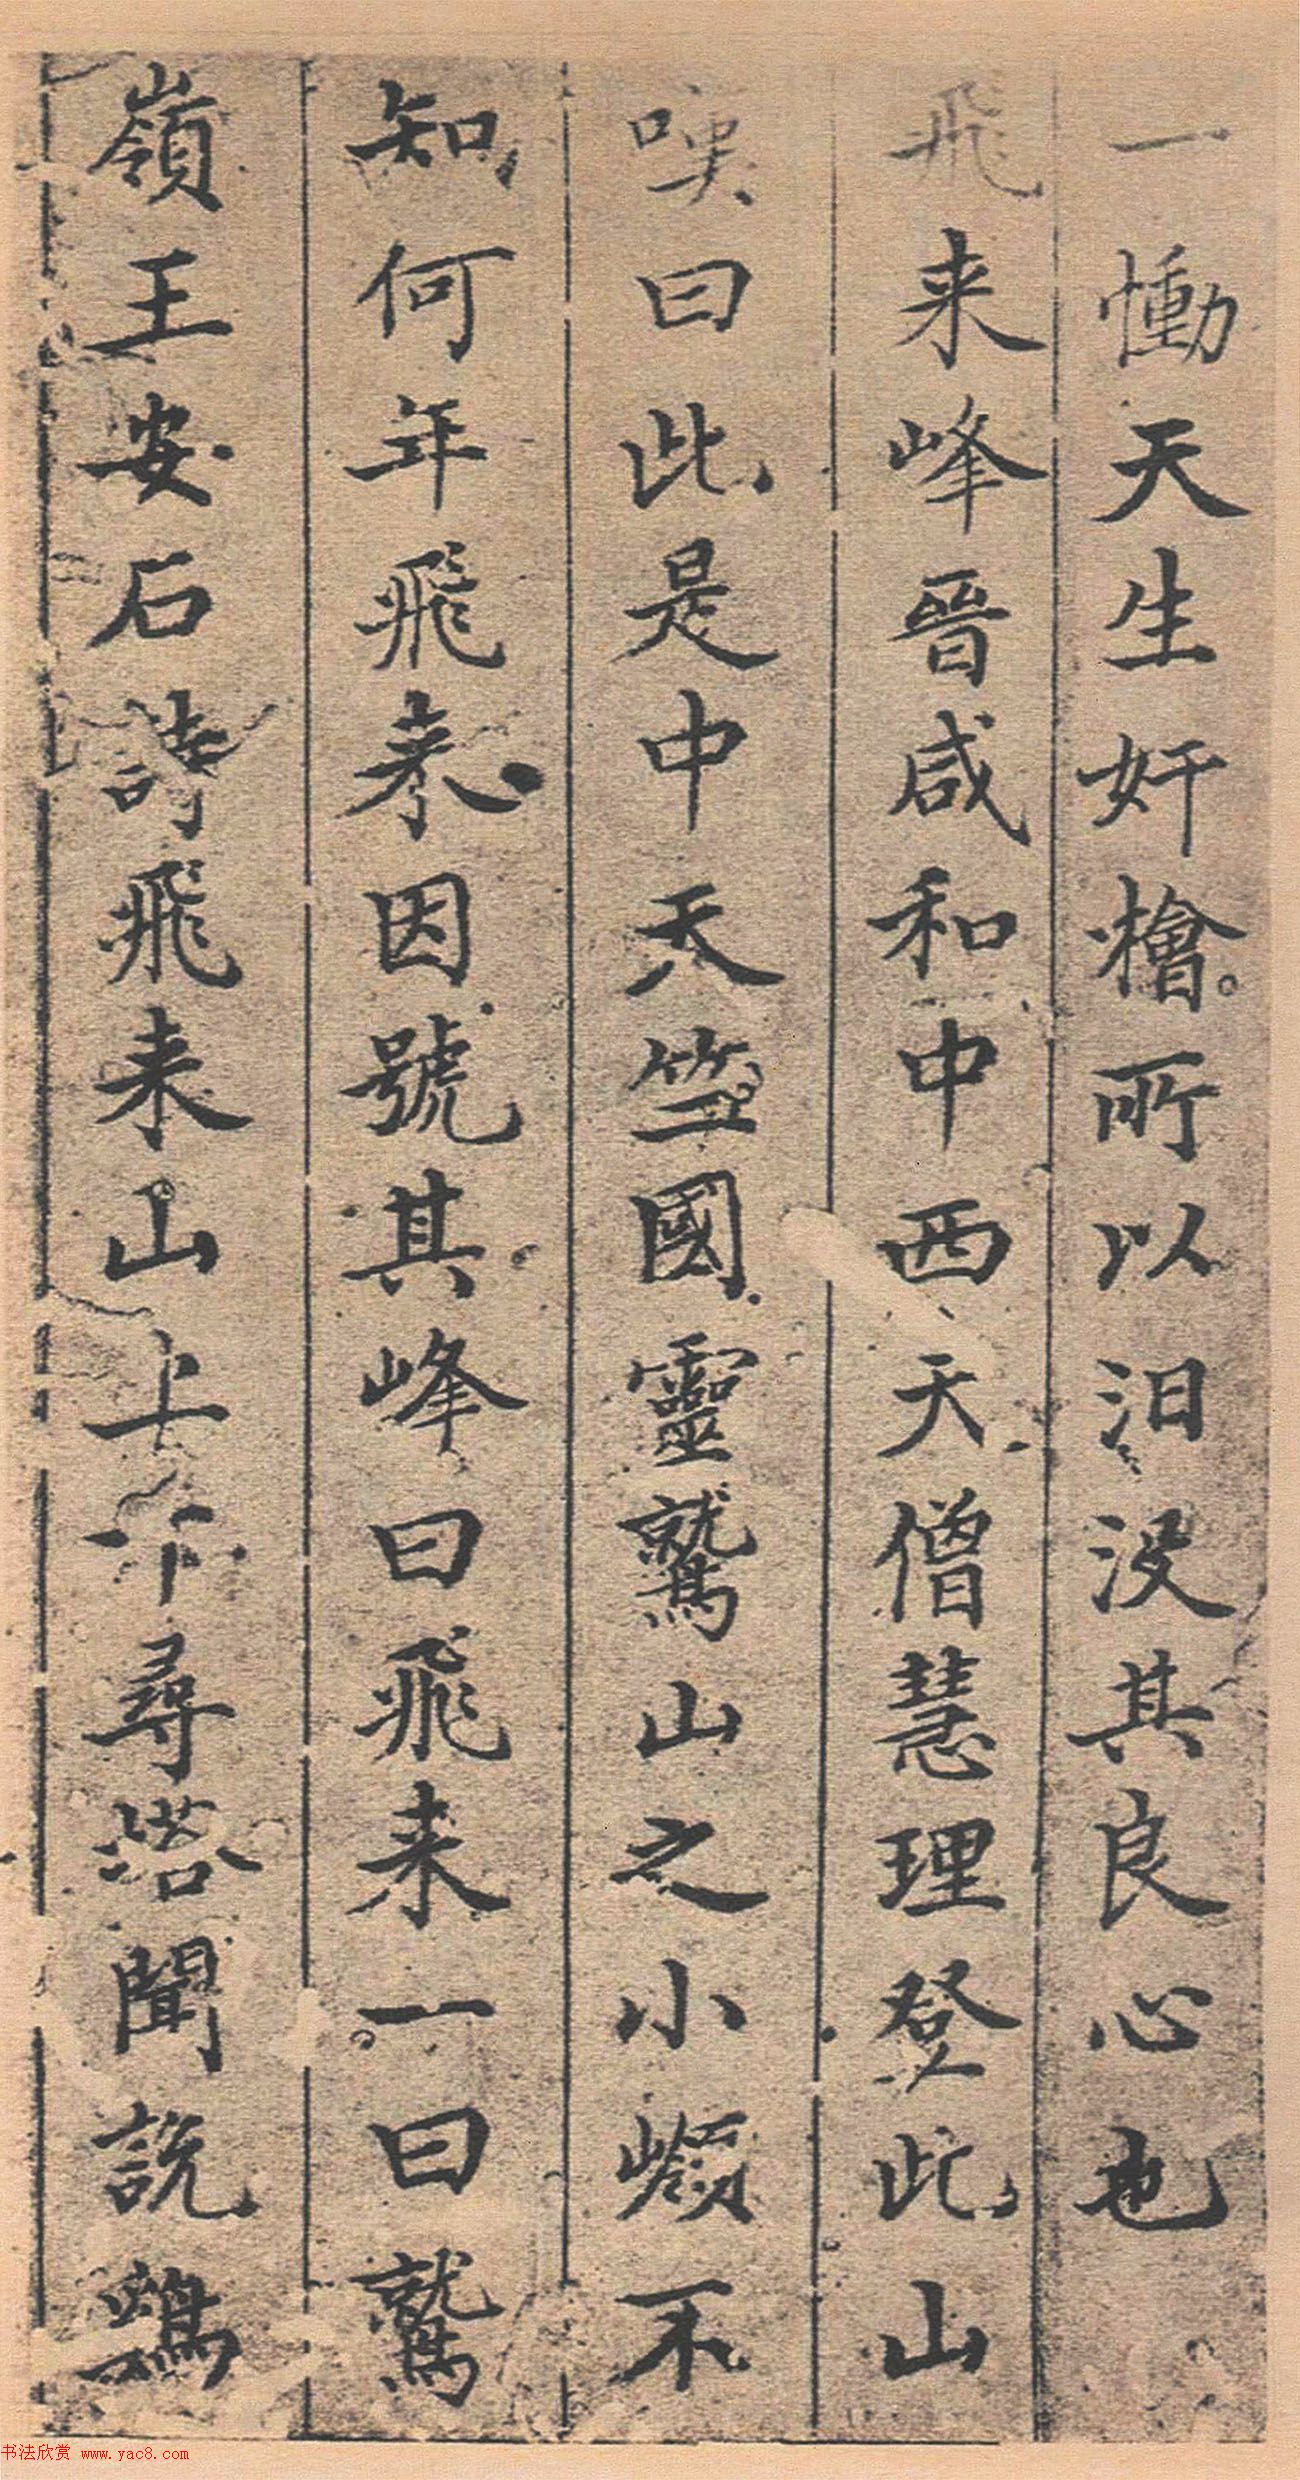 一慟天生奸檜所以汨没其良心也
飛来峰晉咸和中西天僧慧理登此山
嘆曰此是中天竺國靈鷲山之小嶺不
知何年飛来因號其峰曰飛来一曰鷲
嶺王安石詩飛来山上下尋塔聞説鷄
书法欣赏 www.yac8.com